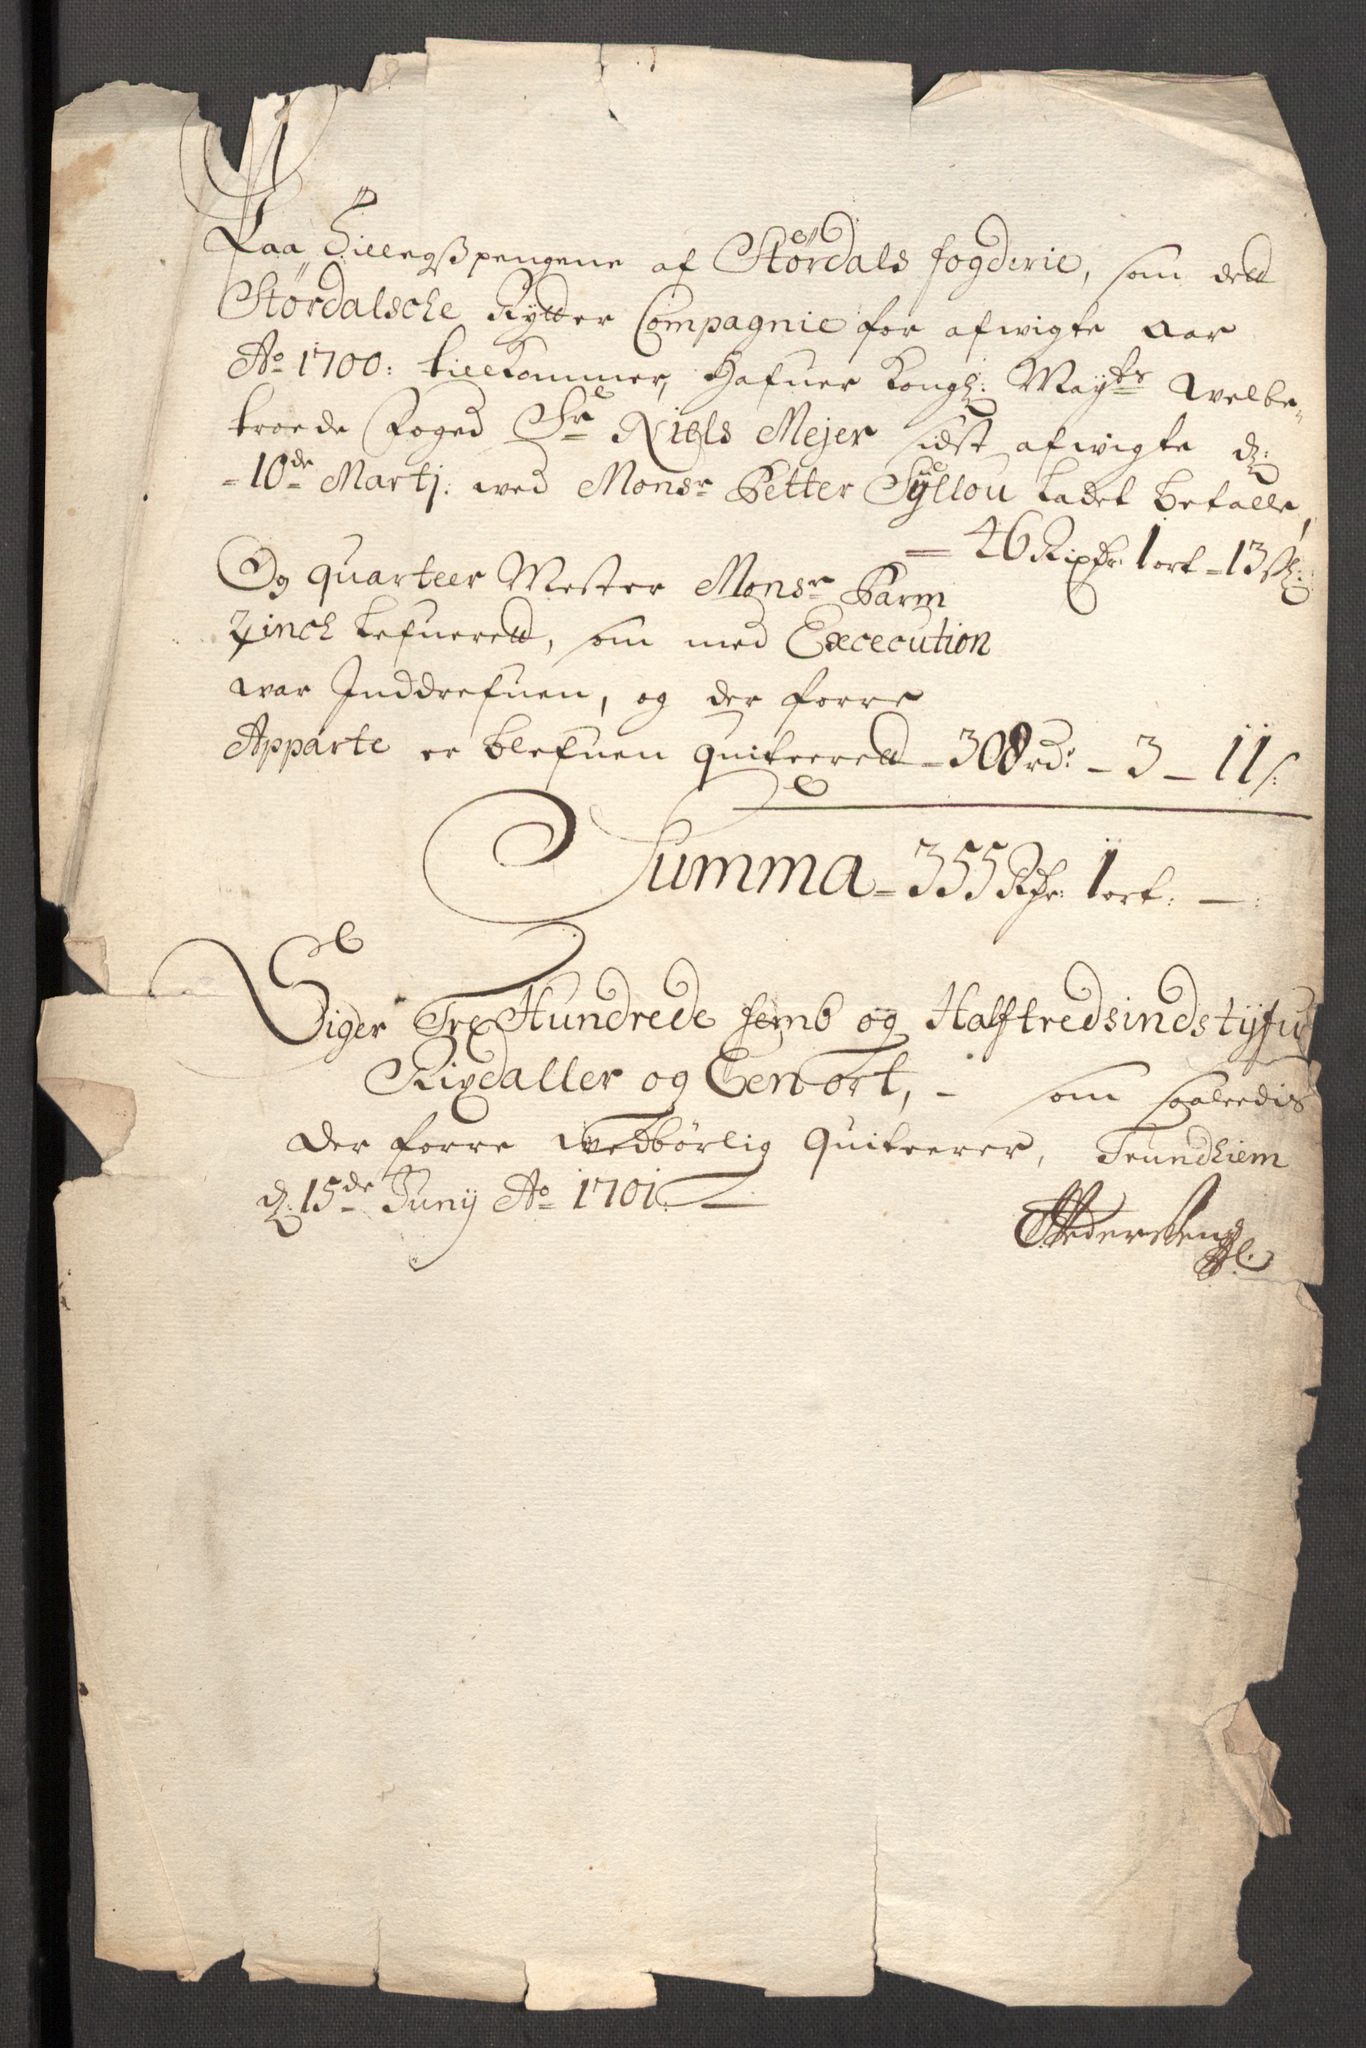 Paa Tillegspengene af Stördals fogderie, som dett
Stördalsche Rytter Compagnie for afwigte aar
Ao 1700: tillkommer, hafuer Kongl: Mayts welbe-
troede Foged Sr Niels Mejer sidst afwigte d:
10de Martj: wed Monsr Petter Syllou ladet betalle,
= 46 Rixdr: 1 ort - 13 sl:
Og quarteer Mester Monsr Parm
zinch lefueret, som med Excecution
war Inddrefuen, og der forre
Apparte er blefuen quiteerett - 308 rd: - 3 - 11 s:
Summa - 355 Rdr: 1 ort: - :
Siger Tre Hundrede femb og Halftredsindstyfue
Rixdaller og Een ort, - som saaledis
der forre wedbørlig Quiteerer, Trundhiem
d: 15de Junij Ao 1701
Pedersen